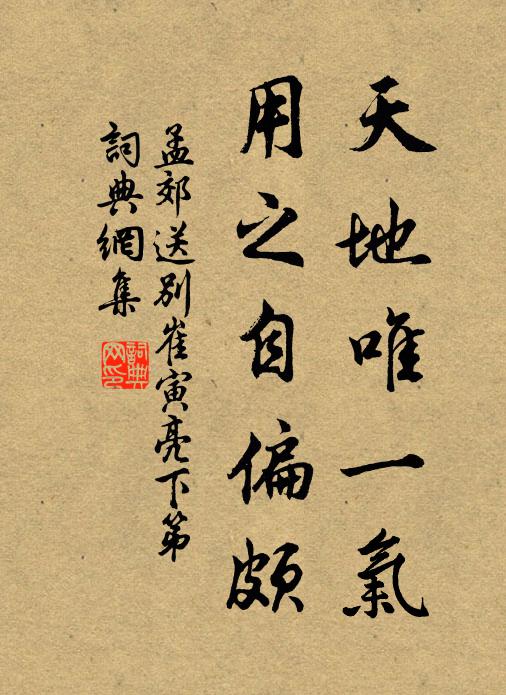 天地唯一氣
用之自偏頗
孟郊送別崔寅亮下第
詞典網集
詞典
网印